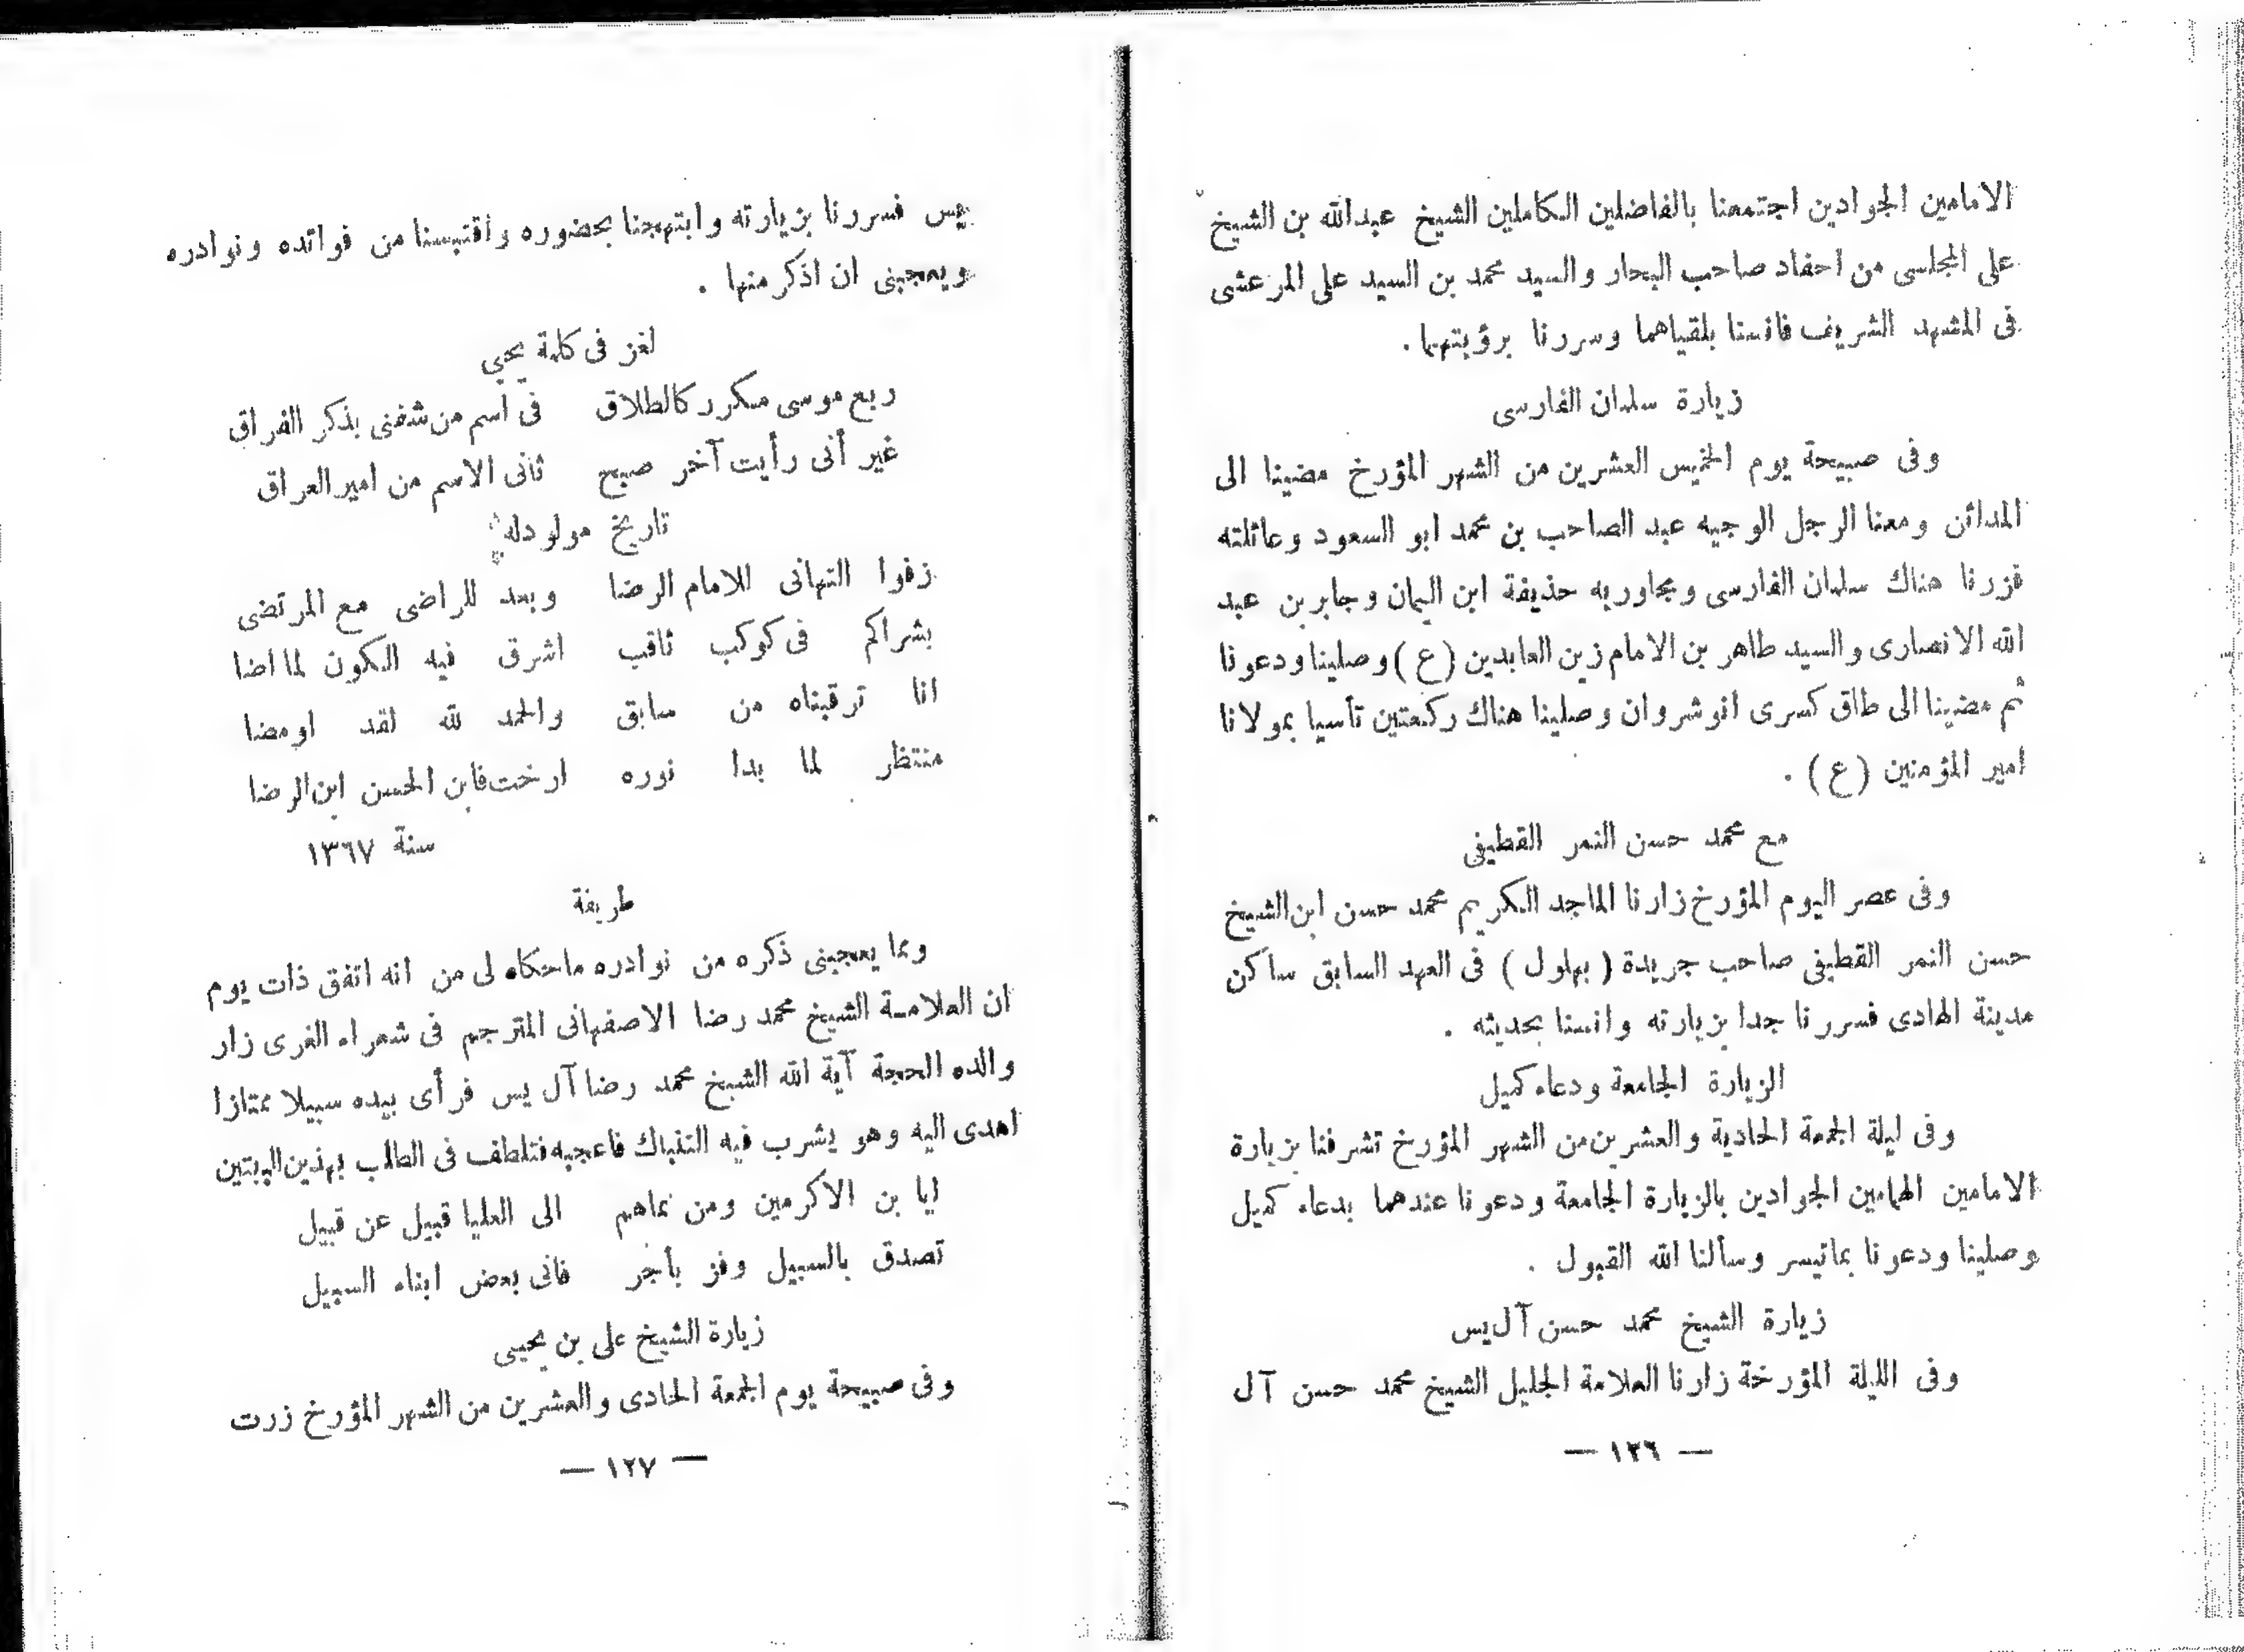 الامامين الجوادين اجتمعنا بالفاضلين الكاملين الشيخ عبدالله بن الشيخ
على المجلسى من احفاد صاحب البحار والسيد محمد بن السيد على المرعشى
فى المشهد الشريف فانسنا بلقياهما وسررنا برؤيتهما .
زيارة سلمان الفارسى
وفى صبيحة يوم الخميس العشرين من الشهر المؤرخ مضينا الى
المدائن ومعنا الرجل الوجيه عبد الصاحب بن محمد ابو السعود وعائلته
فزرنا هناك سلمان الفارسى ومجاوريه حذيفة ابن اليمان وجابر بن عبد
الله الانصارى والسيد طاهر بن الامام زين العابدين (ع) وصلينا ودعونا
ثم مضينا الى طاق كسرى انوشروان وصلينا هناك ركعتين تأسيا بمولانا
امير المؤمنين (ع) .
مع محمد حسن النمر القطيفى
وفى عصر اليوم المؤرخ زارنا الماجد الكريم محمد حسن ابن الشيخ
حسن النمر القطيفى صاحب جريدة ( بهلول ) فى العهد السابق ساكن
مدينة الهادى فسررنا جدا بزيارته وانسنا بحديثه .
الزيارة الجامعة ودعاء كميل
وفى ليلة الجمعة الحادية والعشرين من الشهر المؤرخ تشرفنا بزيارة
الامامين الهمامين الجوادين بالزيارة الجامعة ودعونا عندهما بدعاء كميل
وصلينا ودعونا بماتيسر وسألنا الله القبول .
زيارة الشيخ محمد حسن آل يس
وفى الليلة المؤرخة زارنا العلامة الجليل الشيخ محمد حسن آل
— ١٢٦ —
يس فسررنا بزيارته وابتهجنا بحضوره واقتبسنا من فوائده ونوادره
ويعجبنى ان اذكر منها .
لغز فى كلمة يحيى
ربع موسى مكرر كالطلاق فى اسم من شفنى بذكر الفراق
غير أنى رأيت آخر صبح ثانى الاسم من امير العراق
تاريخ مولود له
زفوا التهانى للامام الرضا وبعد للراضى مع المرتضى
بشراكم فى كوكب ثاقب اشرق فيه الكون لما اضا
انا ترقبناه من سابق والحمد لله لقد اومضا
منتظر لما بدا نوره ارخت فابن الحسن ابن الرضا
سنة ١٣٦٧
طريفة
ومما يعجبنى ذكره من نوادره ماحكاه لى من انه اتفق ذات يوم
ان العلامة الشيخ محمد رضا الاصفهانى المترجم فى شعراء الغرى زار
والده الحجة آية الله الشيخ محمد رضا آل يس فرأى بيده سبيلا ممتازا
اهدى اليه وهو يشرب فيه التنباك فاعجبه فتلطف فى الطلب بهذين البيتين
ايا بن الاكرمين ومن نماهم الى العليا قبيل عن قبيل
تصدق بالسبيل وفز بأجر فانى بعض ابناء السبيل
زيارة الشيخ على بن يحيى
وفى صبيحة يوم الجمعة الحادى والعشرين من الشهر المؤرخ زرت
— ١٢٧ —